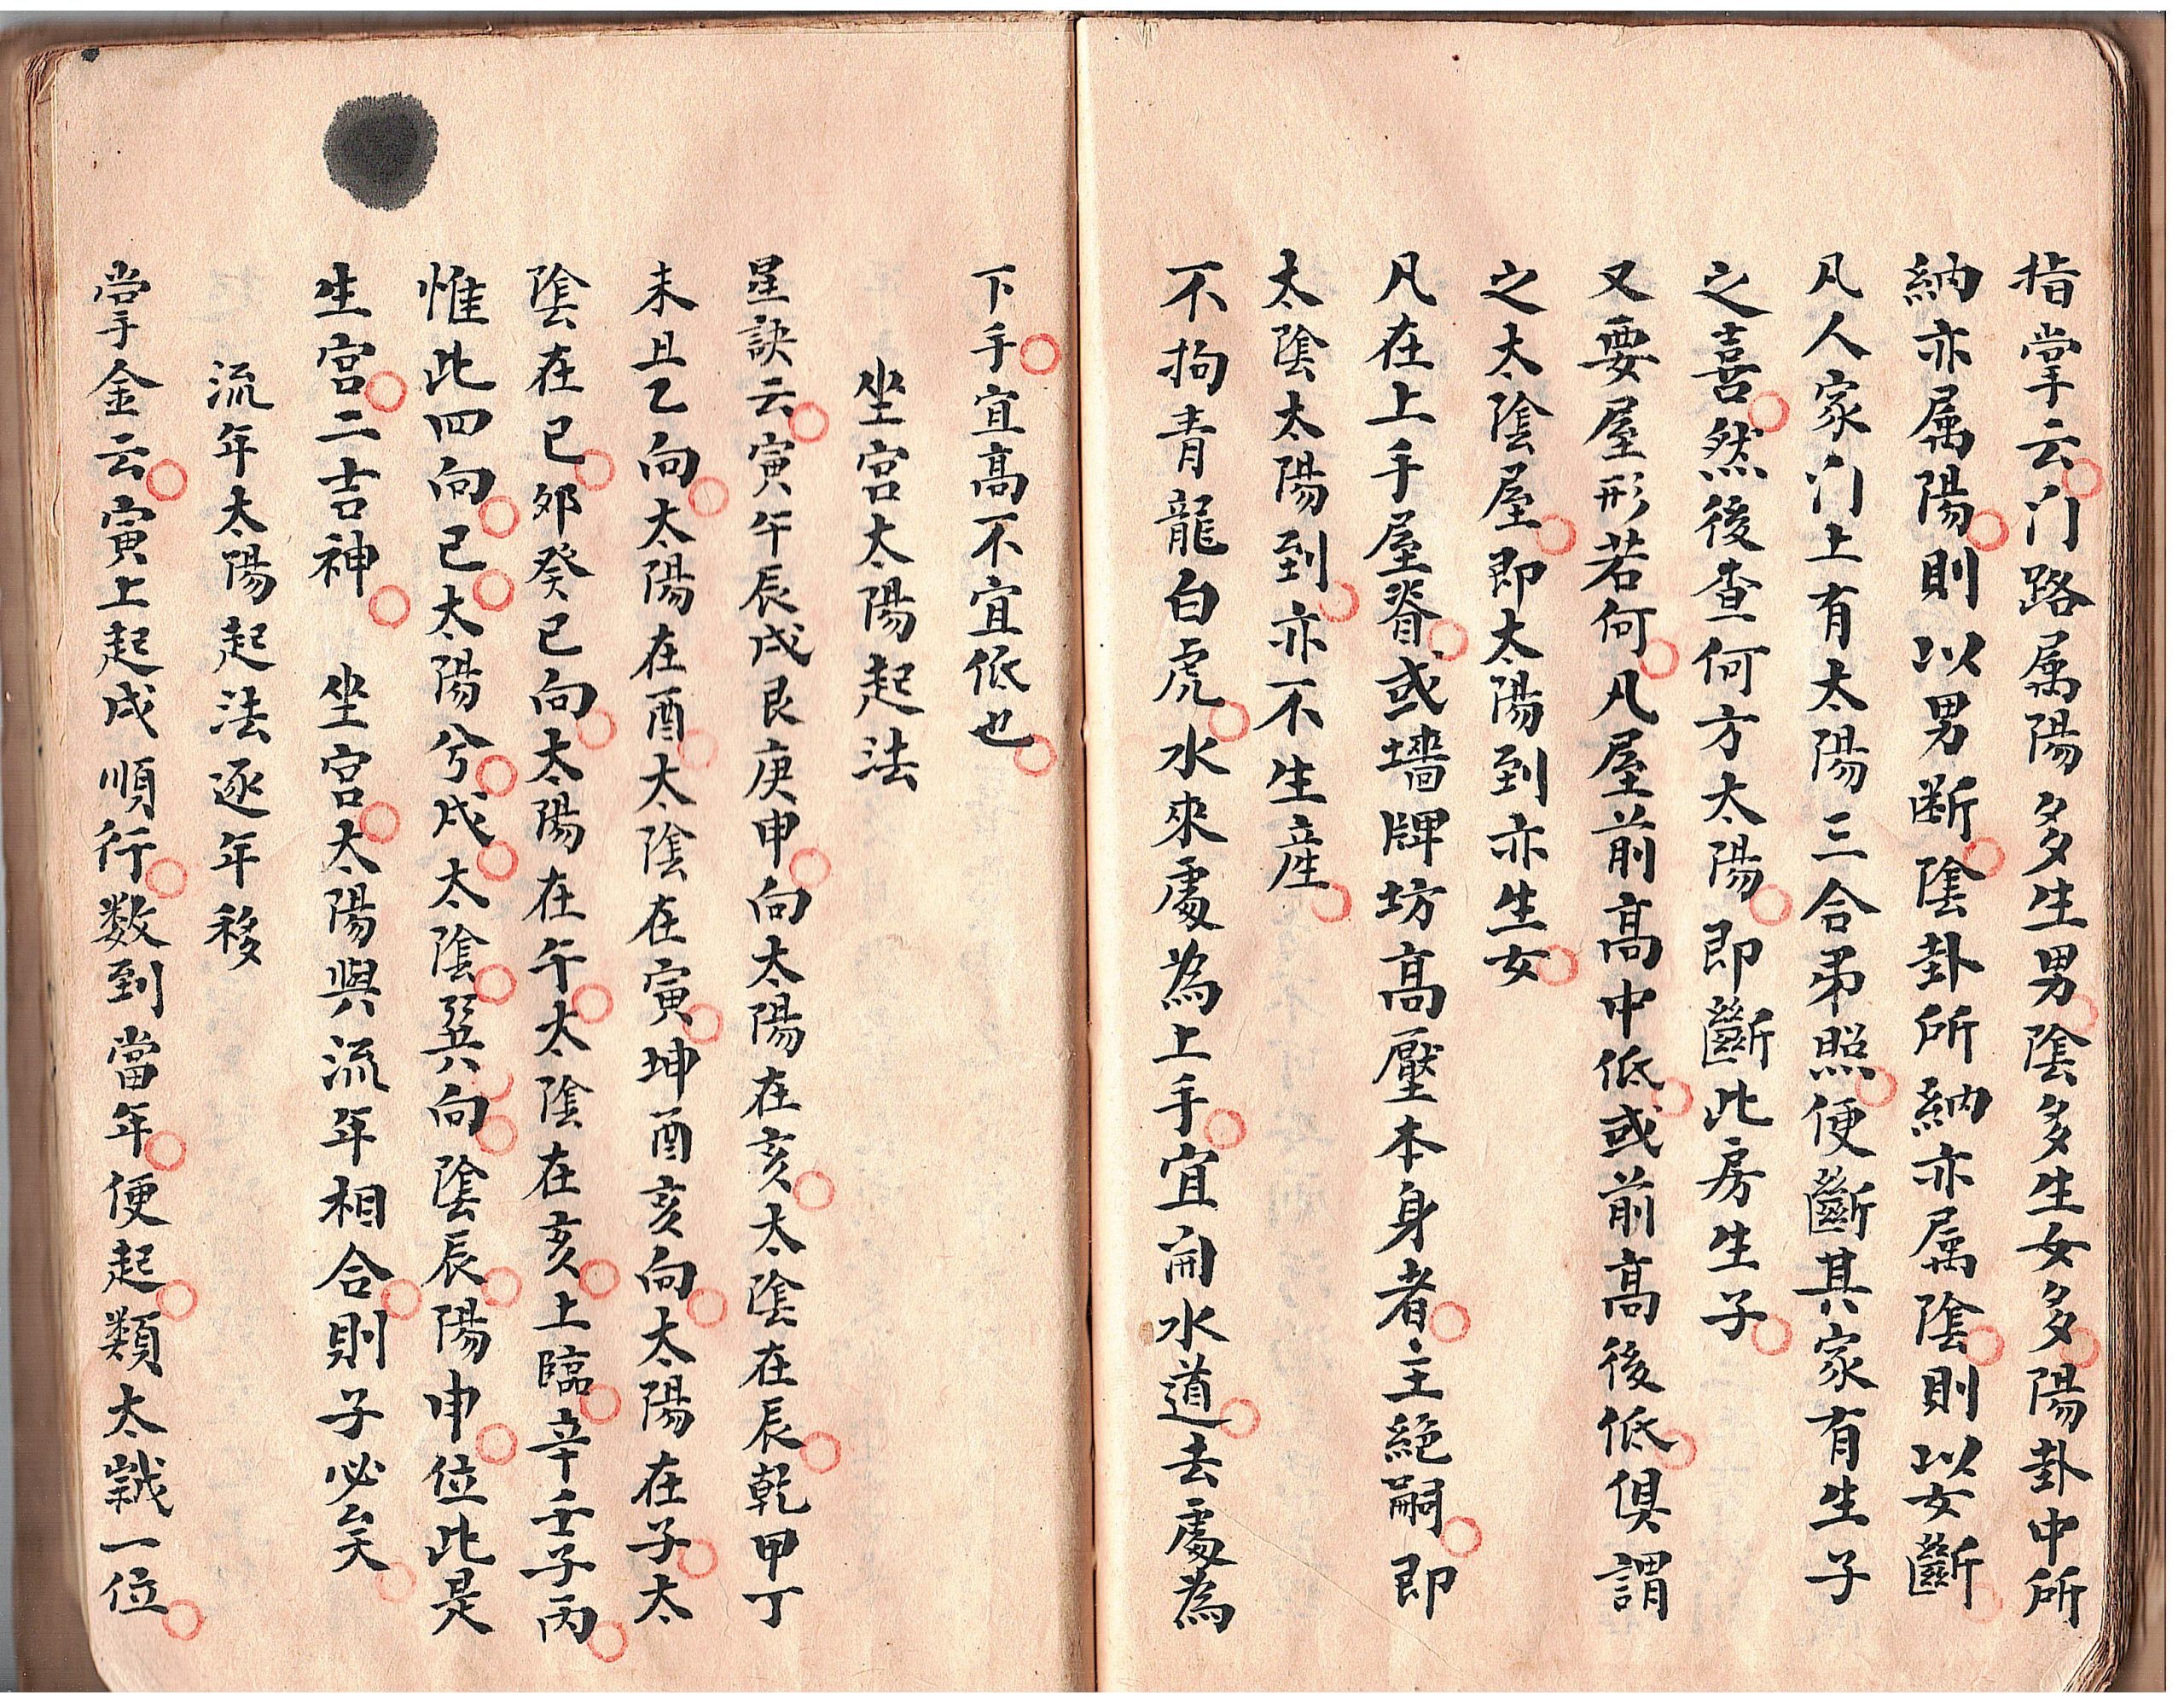 指掌云门路属陽多生男陰多生女多陽卦中所
納亦属陽則以男断陰卦所納亦属陰則以女斷
凡人家门上有太陽三合弟照便斷其家有生子
之喜然後查何方太陽即斷此房生子
又要屋形若何凡屋前高中低或前高後低俱謂
之太陰屋即太陽到亦生女
凡在上手屋脊或墻牌坊高壓本身者主絕嗣即
太陰太陽到亦不生産
不拘青龍白虎水來處為上手宜開水道去處為
下手宜高不宜低也
坐宮太陽起法
星訣云寅午辰戌艮庚申向太陽在亥太陰在辰乾甲丁
未丑乙向太陽在酉太陰在寅坤酉亥向太陽在子太
陰在巳夘癸巳向太陽在午太陰在亥上臨辛壬子丙
惟此四向巳太陽兮戌太陰巽向陰辰陽申位此是
生宮二吉神　坐宮太陽與流年相合則子必矣
流年太陽起法逐年移
掌金云寅上起戌順行数到當年便起類太歲一位